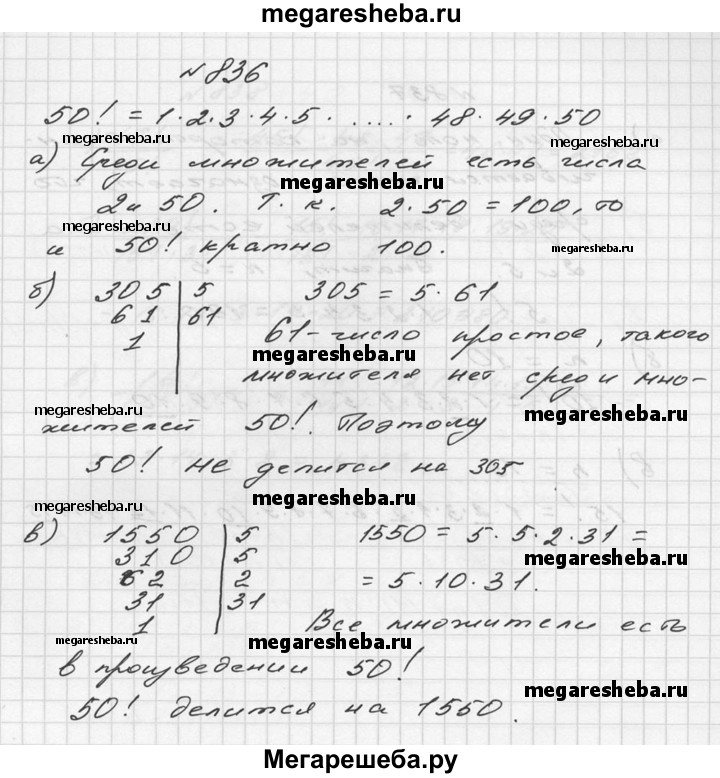 megaresheba.ru
№836
50! = 1·2·3·4·5· ..... · 48·49·50
megaresheba.ru
megaresheba.ru
а) Среди множителей есть числа
megaresheba.ru
2 и 50. Т. к. 2·50 = 100, то
megaresheba.ru
megaresheba.ru
и 50! кратно 100.
б) 305 | 5 305 = 5·61
61 | 61 61 - число простое, такого
1
megaresheba.ru
множителя нет среди мно-
megaresheba.ru
megaresheba.ru
жителей 50!. Поэтому
50! не делится на 305
megaresheba.ru
megaresheba.ru
в) 1550 | 5 1550 = 5·5·2·31 =
310 | 5
megaresheba.ru
62 | 2 = 5·10·31.
31 | 31
megaresheba.ru
1 Все множители есть
megaresheba.ru
megaresheba.ru
в произведении 50!
megaresheba.ru
50! делится на 1550.
Мегарешеба.ру